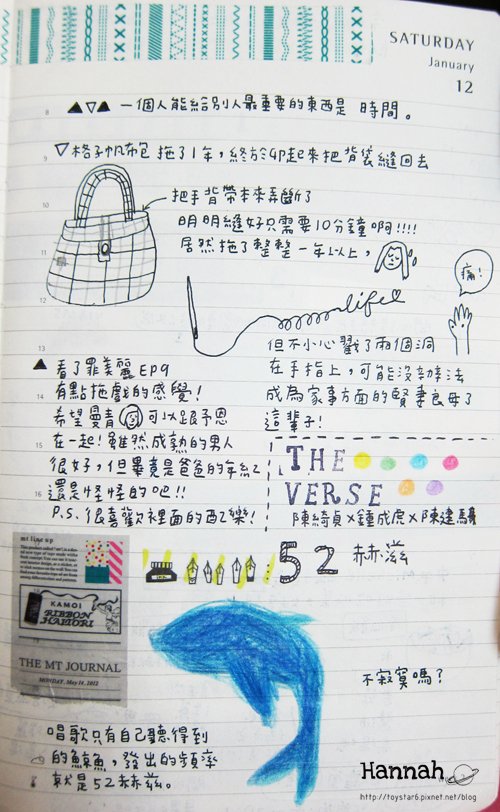 SATURDAY
January
12
8 ▲▽▲ 一個人能給別人最重要的東西是 時間。
9 ▽格子帆布包 拖了1年,終於gp起來把背袋縫回去
10 把手背帶本來弄斷了
明明縫好只需要10分鐘啊!!!!
11 居然拖了整整一年以上,
痛!
life
12
但不小心戳了兩個洞
在手指上,可能沒辦法
成為家事方面的賢妻良母了
這輩子!
13
▲ 看了罪美麗EP9
14 有點拖戲的感覺!
希望曼青 可以跟予恩
15 在一起!雖然成熟的男人
很好,但畢竟是爸爸的年紀
16 還是怪怪的吧!!
P.S. 很喜歡裡面的配樂!
THE
VERSE
陳綺貞×鍾成虎×陳建騏
mt line up
KAMOI
RIBBON
HAITORI
THE MT JOURNAL
MONDAY, May 14, 2012
: 52 赫茲
不寂寞嗎?
唱歌只有自己聽得到
的鯨魚,發出的頻率
就是52赫茲。
Hannah
http://toystar6.pixnet.net/blog